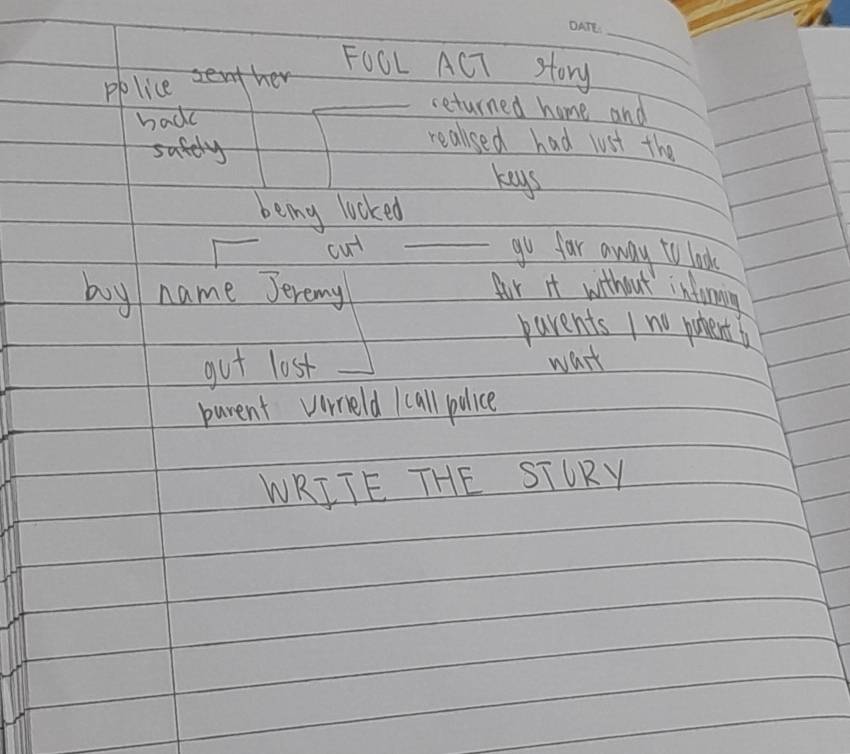 DATE:
FOOL ACT story
police sent her
back
safely
returned home and
realised had lost the
keys
being locked
out
go far away to look
for it without informing
parents / no patient to
wait
boy name Jeremy
got lost
parent worrield / call police
WRITE THE STORY